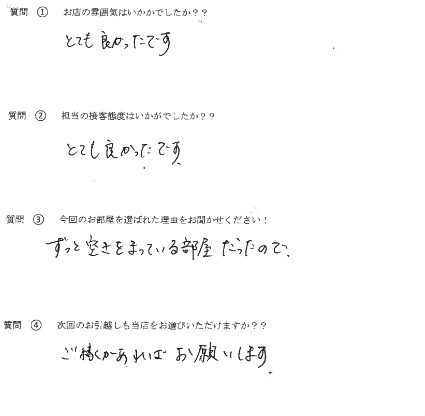 質問 ① お店の雰囲気はいかかでしたか？？
とても良かったです
質問 ② 担当の接客態度はいかがでしたか？？
とても良かったです。
質問 ③ 今回のお部屋を選ばれた理由をお聞かせください！
ずっと空きをまっている部屋だったので。
質問 ④ 次回のお引越しも当店をお選びいただけますか？？
ご縁があればお願いします。